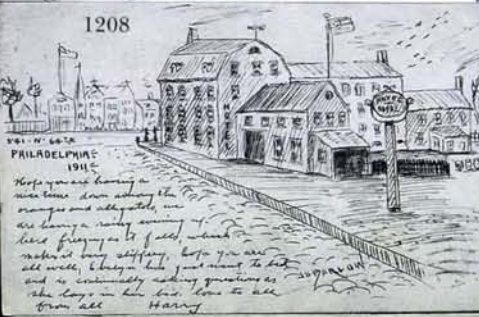 1208
HOTEL
541-N-64TH
PHILADELPHIA
1911
Hope you are having a
nice time down among the
oranges and alligators, we
are having a rainy evening up
here freezing as it falls, which
makes it very slippery, hope you are
all well, Evelyn has just went to bed
and is continually asking questions as
she lays in her bed. love to all
from all Harry